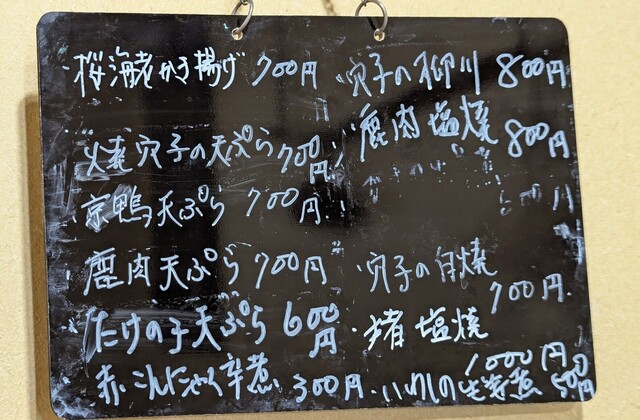 桜海老かき揚げ 700円
焼穴子の天ぷら 700円
京鴨天ぷら 700円
鹿肉天ぷら 700円
たけの子天ぷら 600円
赤こんにゃく辛煮 300円
穴子の柳川 800円
鹿肉塩焼 800円
穴子の白焼 700円
猪塩焼 1000円
いわしの生姜煮 500円